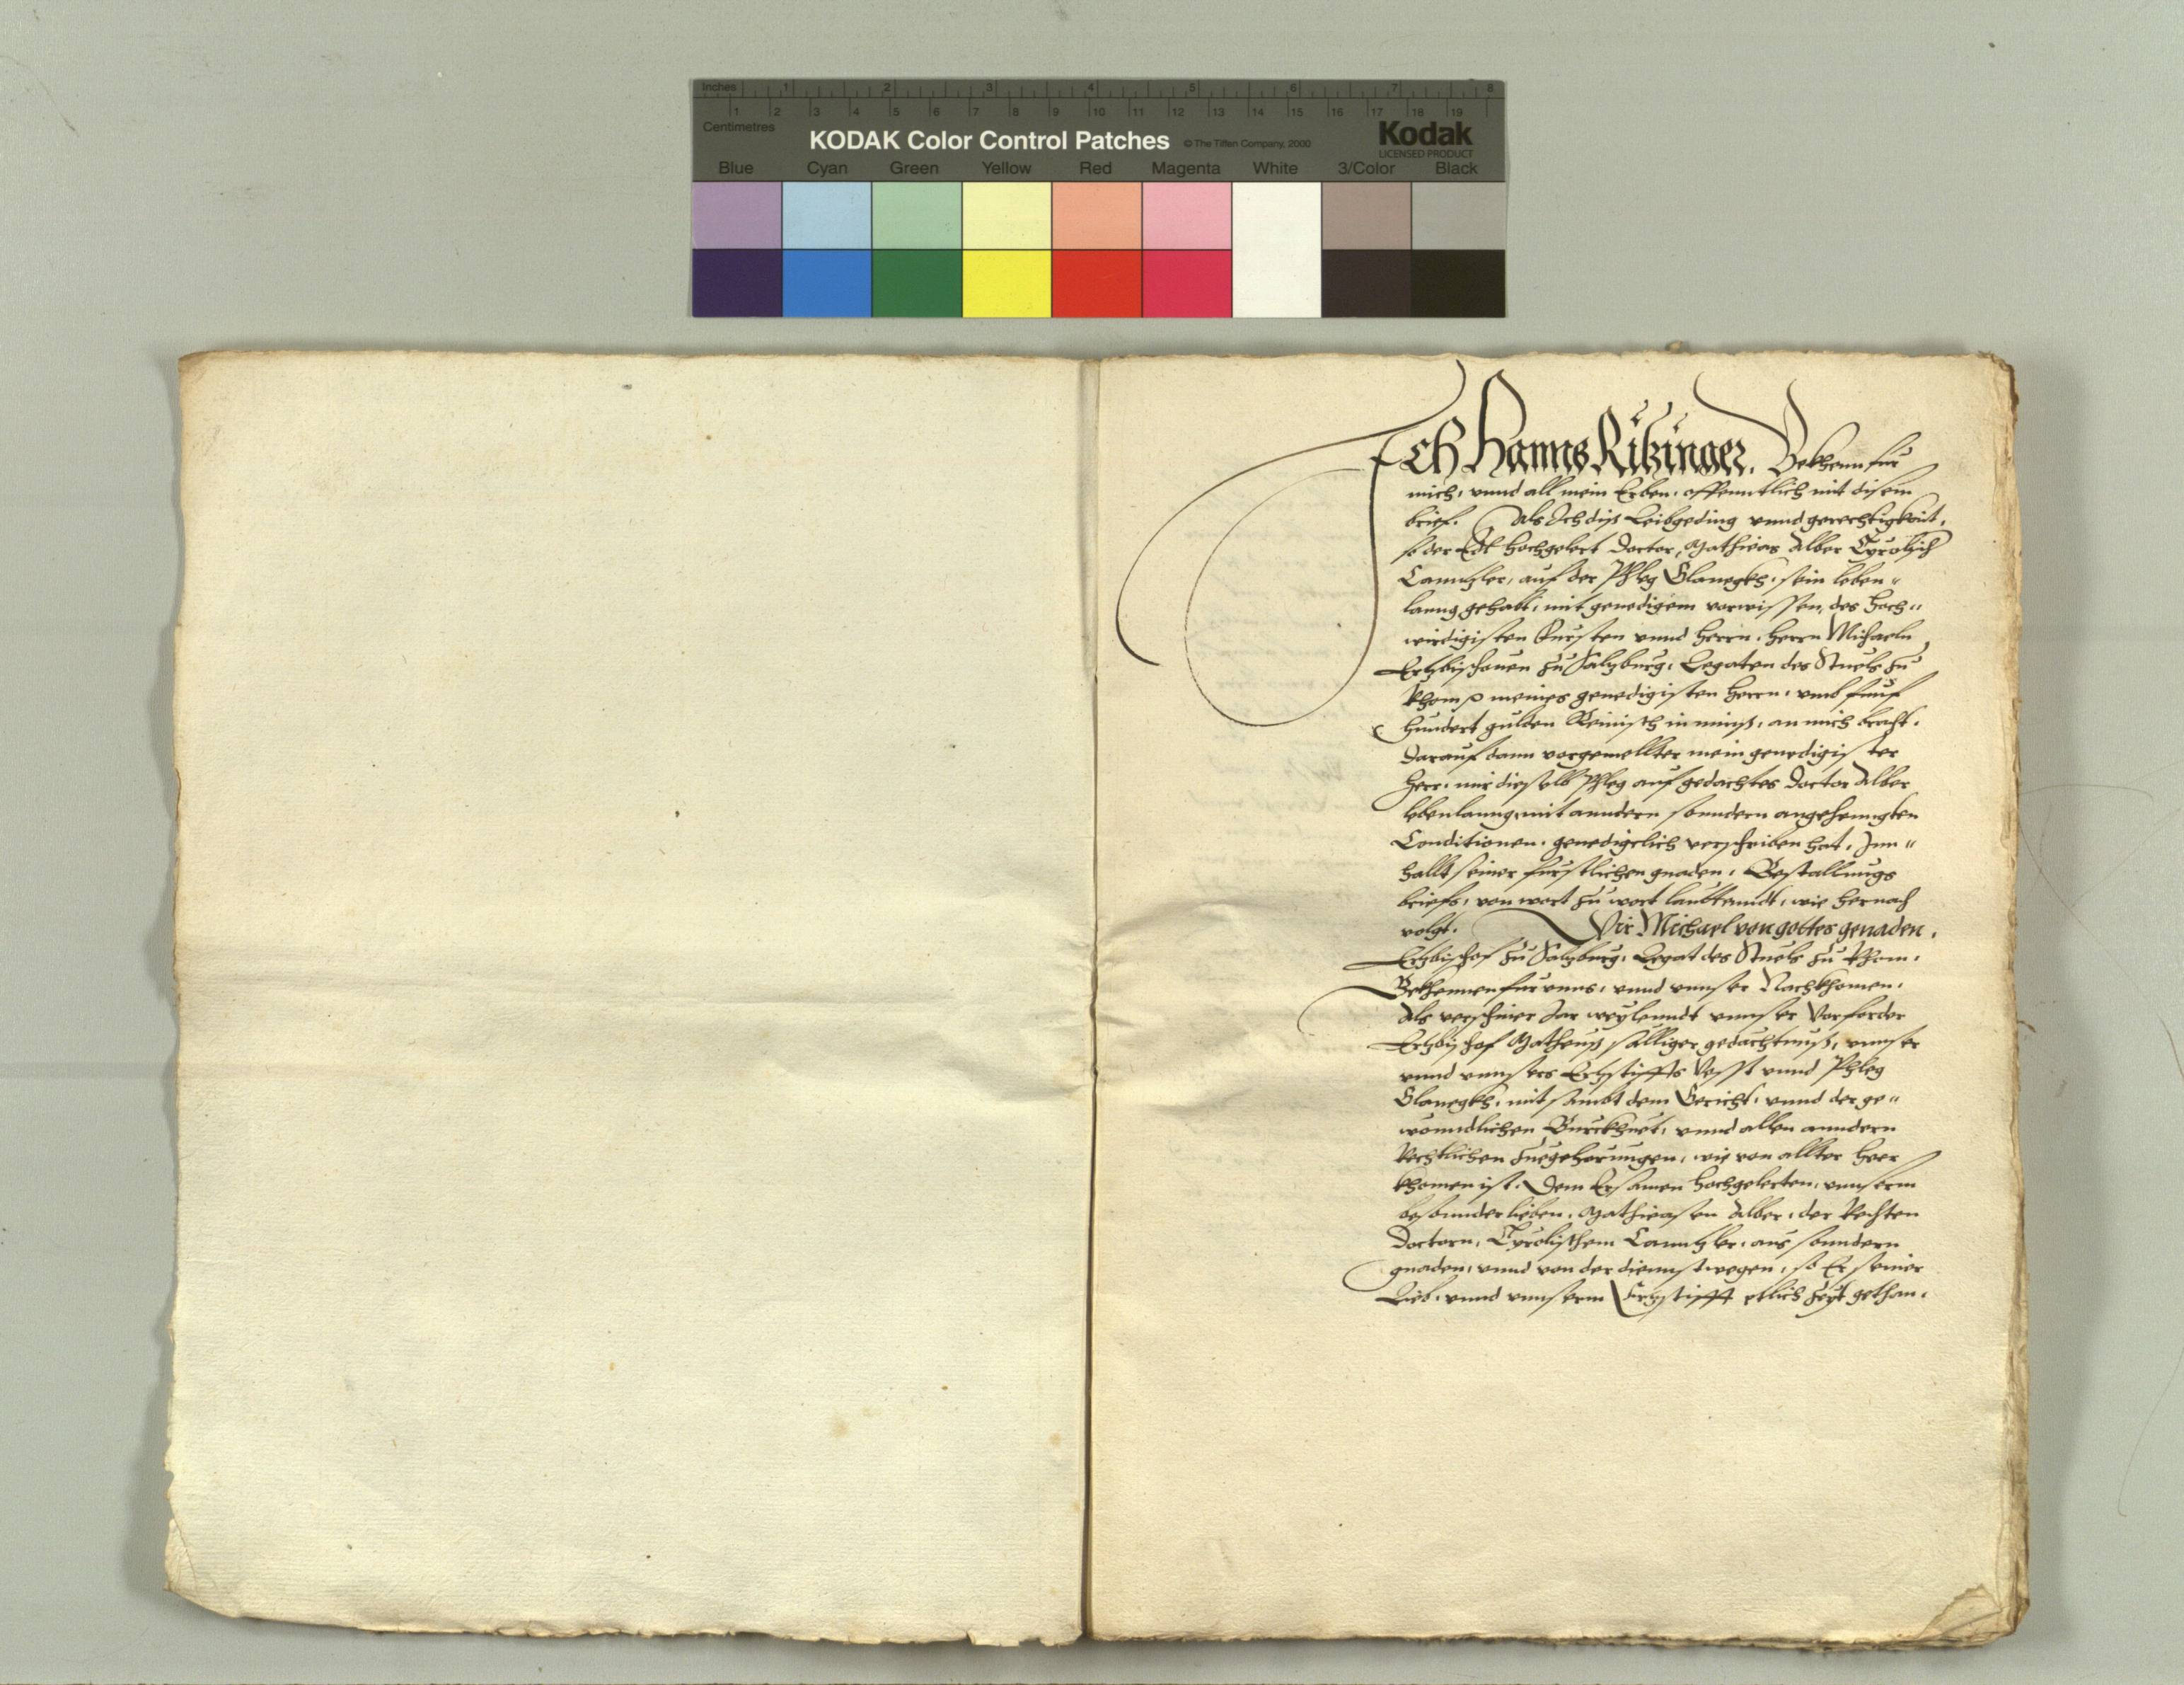 Inches 1 2 3 4 5 6 7 8
1 2 3 4 5 6 7 8 9 10 11 12 13 14 15 16 17 18 19
Centimetres
KODAK Color Control Patches © The Tiffen Company, 2000 Kodak
LICENSED PRODUCT
Blue Cyan Green Yellow Red Magenta White 3/Color Black
Ich Hanns Ritzinger. Bekhenn fur
mich, vnnd all mein Erben, offenntlich mit disem
brief. Als Ich diß Leibgeding vnnd gerechtigkait,
so der Edl hochgelert Doctor, Mathias Alber Tyrolisch
Canntzler, auf der Phleg Glanegkh, sein leben "
lanng gehabt, mit genedigem vorwissen, des hoch "
wirdigisten Fursten vnnd herrn, herrn Michaeln
Ertzbischouen zu Saltzburg, Legaten des Stuels zu
Rhom meines genedigisten herrn, vmb funf
hundert gulden Reinisch in muntz, an mich bracht.
Darauf dann vorgemellter mein genedigister
herr, mir dieselb Phleg auf gedachtes Doctor Alber
lebenlanng, mit anndern sonndern angehenngten
Conditionen, genedigclich verschriben hat, Inn "
hallt seiner furstlichen gnaden, Bestallungs
briefs, von wort zu wort lauttenndt, wie hernach
volgt. Wir Michael von gottes genaden,
Ertzbischof zu Saltzburg, Legat des Stuels zu Rhom,
Bekhennen fur vnns, vnnd vnnser Nachkhomen,
Als verschiner Jar weylenndt vnnser Vorforder
Ertzbischof Matheus sälliger gedachtnuß, vnnser
vnnd vnnsers Ertzstiffts Vesst vnnd Phleg
Glanegkh, mit sambt dem Gericht, vnnd der ge "
wonndlichen Burckhuet, vnnd allen anndern
Rechtlichen zuegehorungen, wie von allter heer
khomen ist, Dem Ersamen hochgelerten, vnnserm
besonnder lieben, Mathiasen Alber, der Rechten
Doctorn, Tyrolischem Canntzler, aus sonndern
gnaden, vnnd von der diennst wegen, so Er seiner
Lieb, vnnd vnnserm Ertzstifft etlich zeyt gethan,